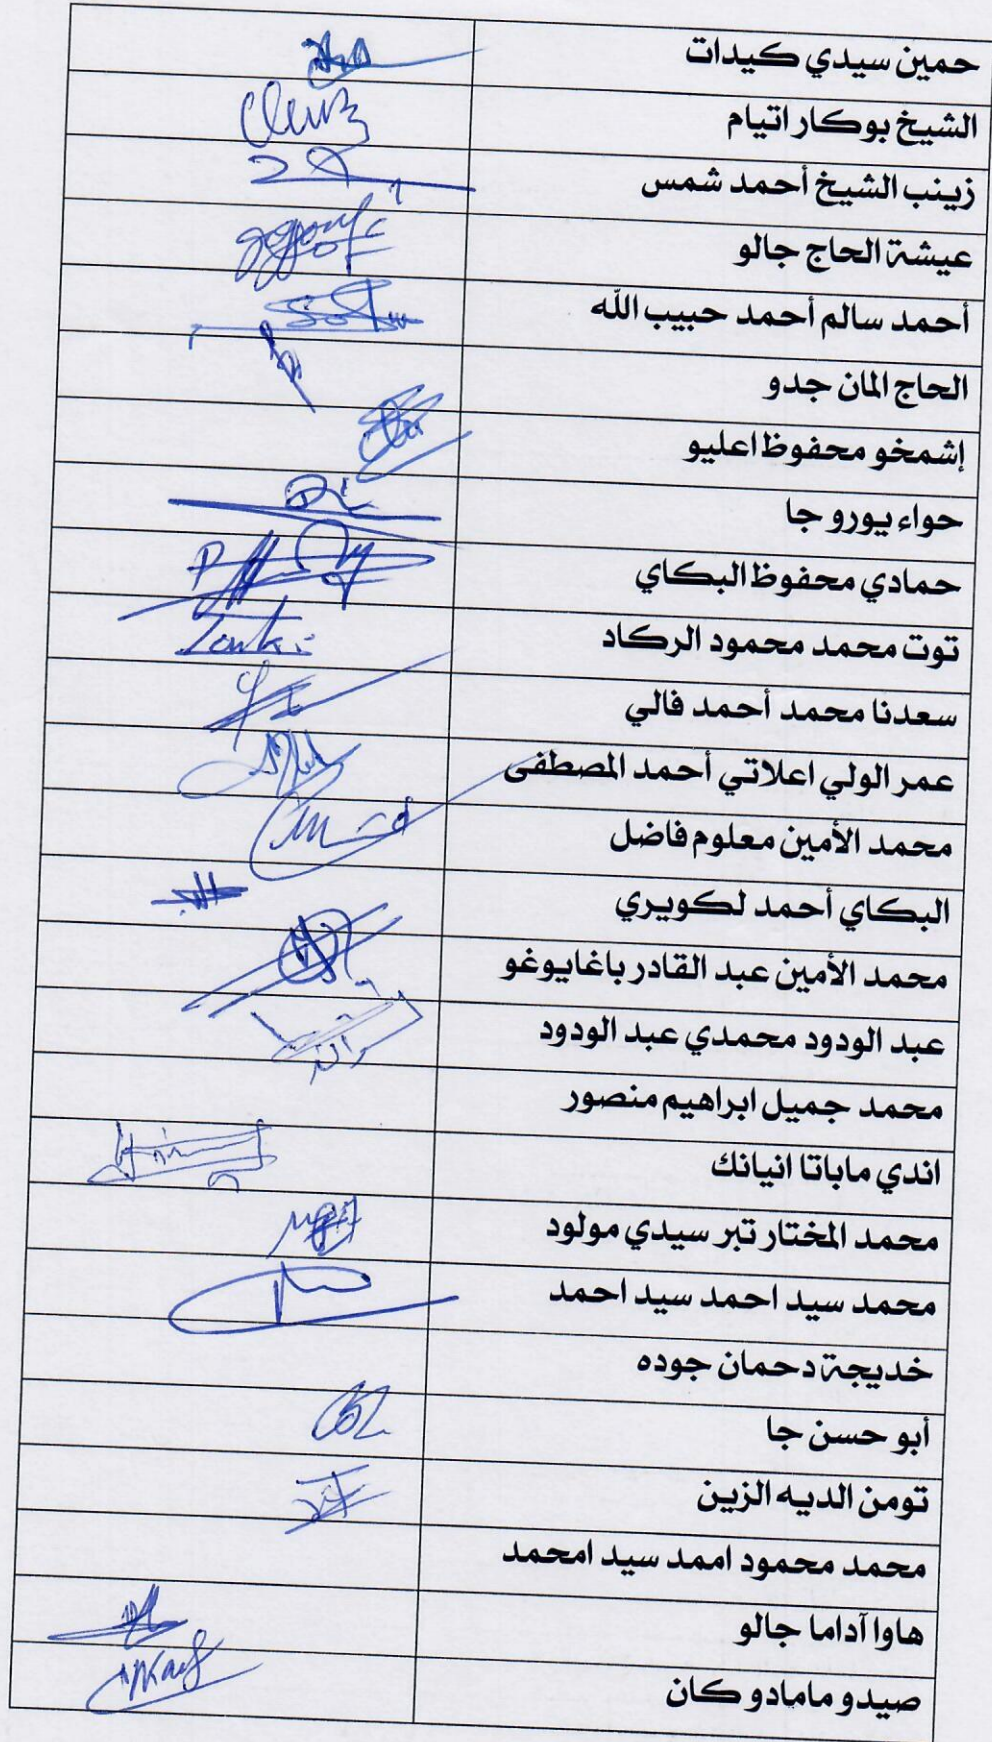 حمين سيدي كيدات
الشيخ بوكار اتيام
زينب الشيخ أحمد شمس
عيشة الحاج جالو
أحمد سالم أحمد حبيب الله
الحاج المان جدو
إشمخو محفوظ اعليو
حواء يورو جا
حمادي محفوظ البكاي
توت محمد محمود الركاد
سعدنا محمد أحمد فالي
عمر الولي اعلاتي أحمد المصطفى
محمد الأمين معلوم فاضل
البكاي أحمد لكويري
محمد الأمين عبد القادر باغايوغو
عبد الودود محمدي عبد الودود
محمد جميل ابراهيم منصور
اندي ماباتا انيانك
محمد المختار تبر سيدي مولود
محمد سيد احمد سيد احمد
خديجة دحمان جوده
أبو حسن جا
تومن الديه الزين
محمد محمود اممد سيد امحمد
هاوا آداما جالو
صيدو مامادو كان